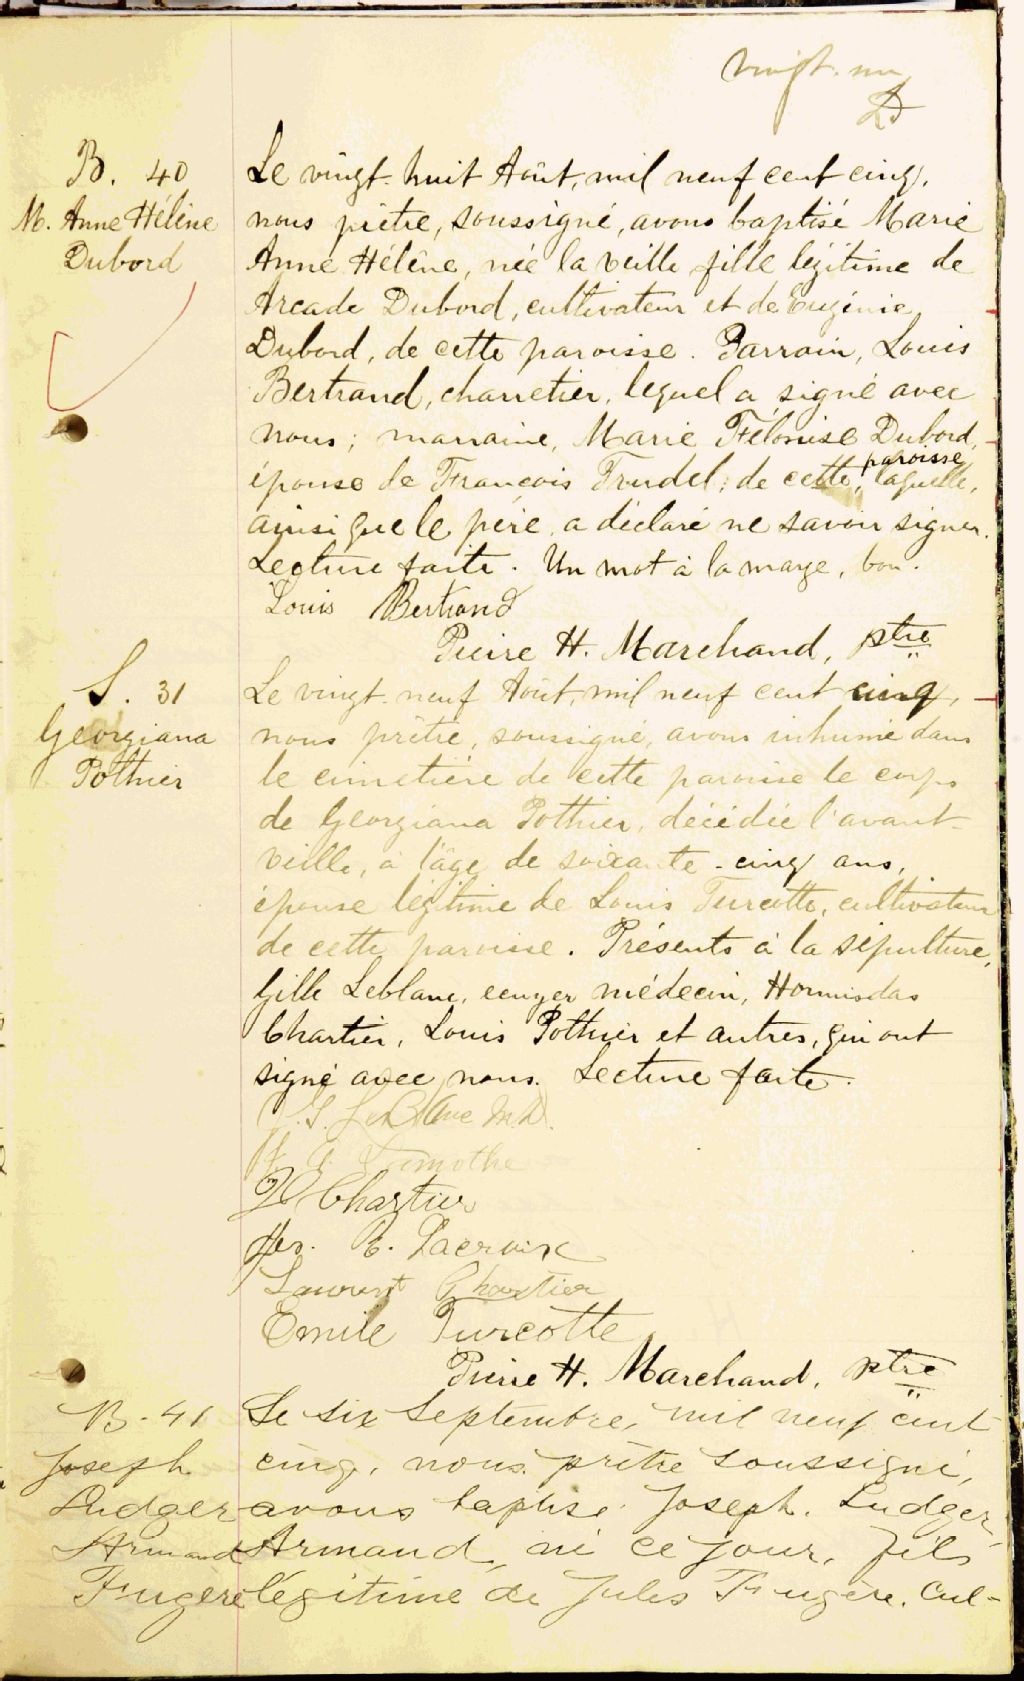 vingt-un
B. 40
M. Anne Hélène
Dubord
Le vingt-huit Août, mil neuf cent cinq,
nous prêtre, soussigné, avons baptisé Marie
Anne Hélène, née la veille fille légitime de
Arcade Dubord, cultivateur et de Eugénie
Dubord, de cette paroisse. Parrain, Louis
Bertrand, charretier, lequel a signé avec
nous; marraine, Marie Félonise Dubord,
épouse de François Trudel; de cette, paroisse laquelle,
ainsi que le père, a déclaré ne savoir signer.
Lecture faite. Un mot à la marge, bon.
Louis Bertrand
Pierre H. Marchand, ptre
S. 31
Georgiana
Pothier
Le vingt-neuf Août, mil neuf cent cinq,
nous prêtre, soussigné, avons inhumé dans
le cimetière de cette paroisse le corps
de Georgiana Pothier, décédée l'avant-
veille, à l'âge de soixante-cinq ans,
épouse légitime de Louis Turcotte, cultivateur
de cette paroisse. Présents à la sépulture,
Gille Leblanc, ecuyer médecin, Hormisdas
Chartier, Louis Pothier et autres, qui ont
signé avec nous. Lecture faite.
LeBlanc M.D.
Lamothe
H Chartier
E. Lacroix
Laurent Chartier
Emile Turcotte
Pierre H. Marchand, ptre
B. 41
Joseph
Ludger
Armand
Frugère
Le six Septembre, mil neuf cent
cinq, nous prêtre soussigné,
avons baptisé Joseph, Ludger,
Armand, né ce jour, fils
légitime de Jules Frugère, cul-